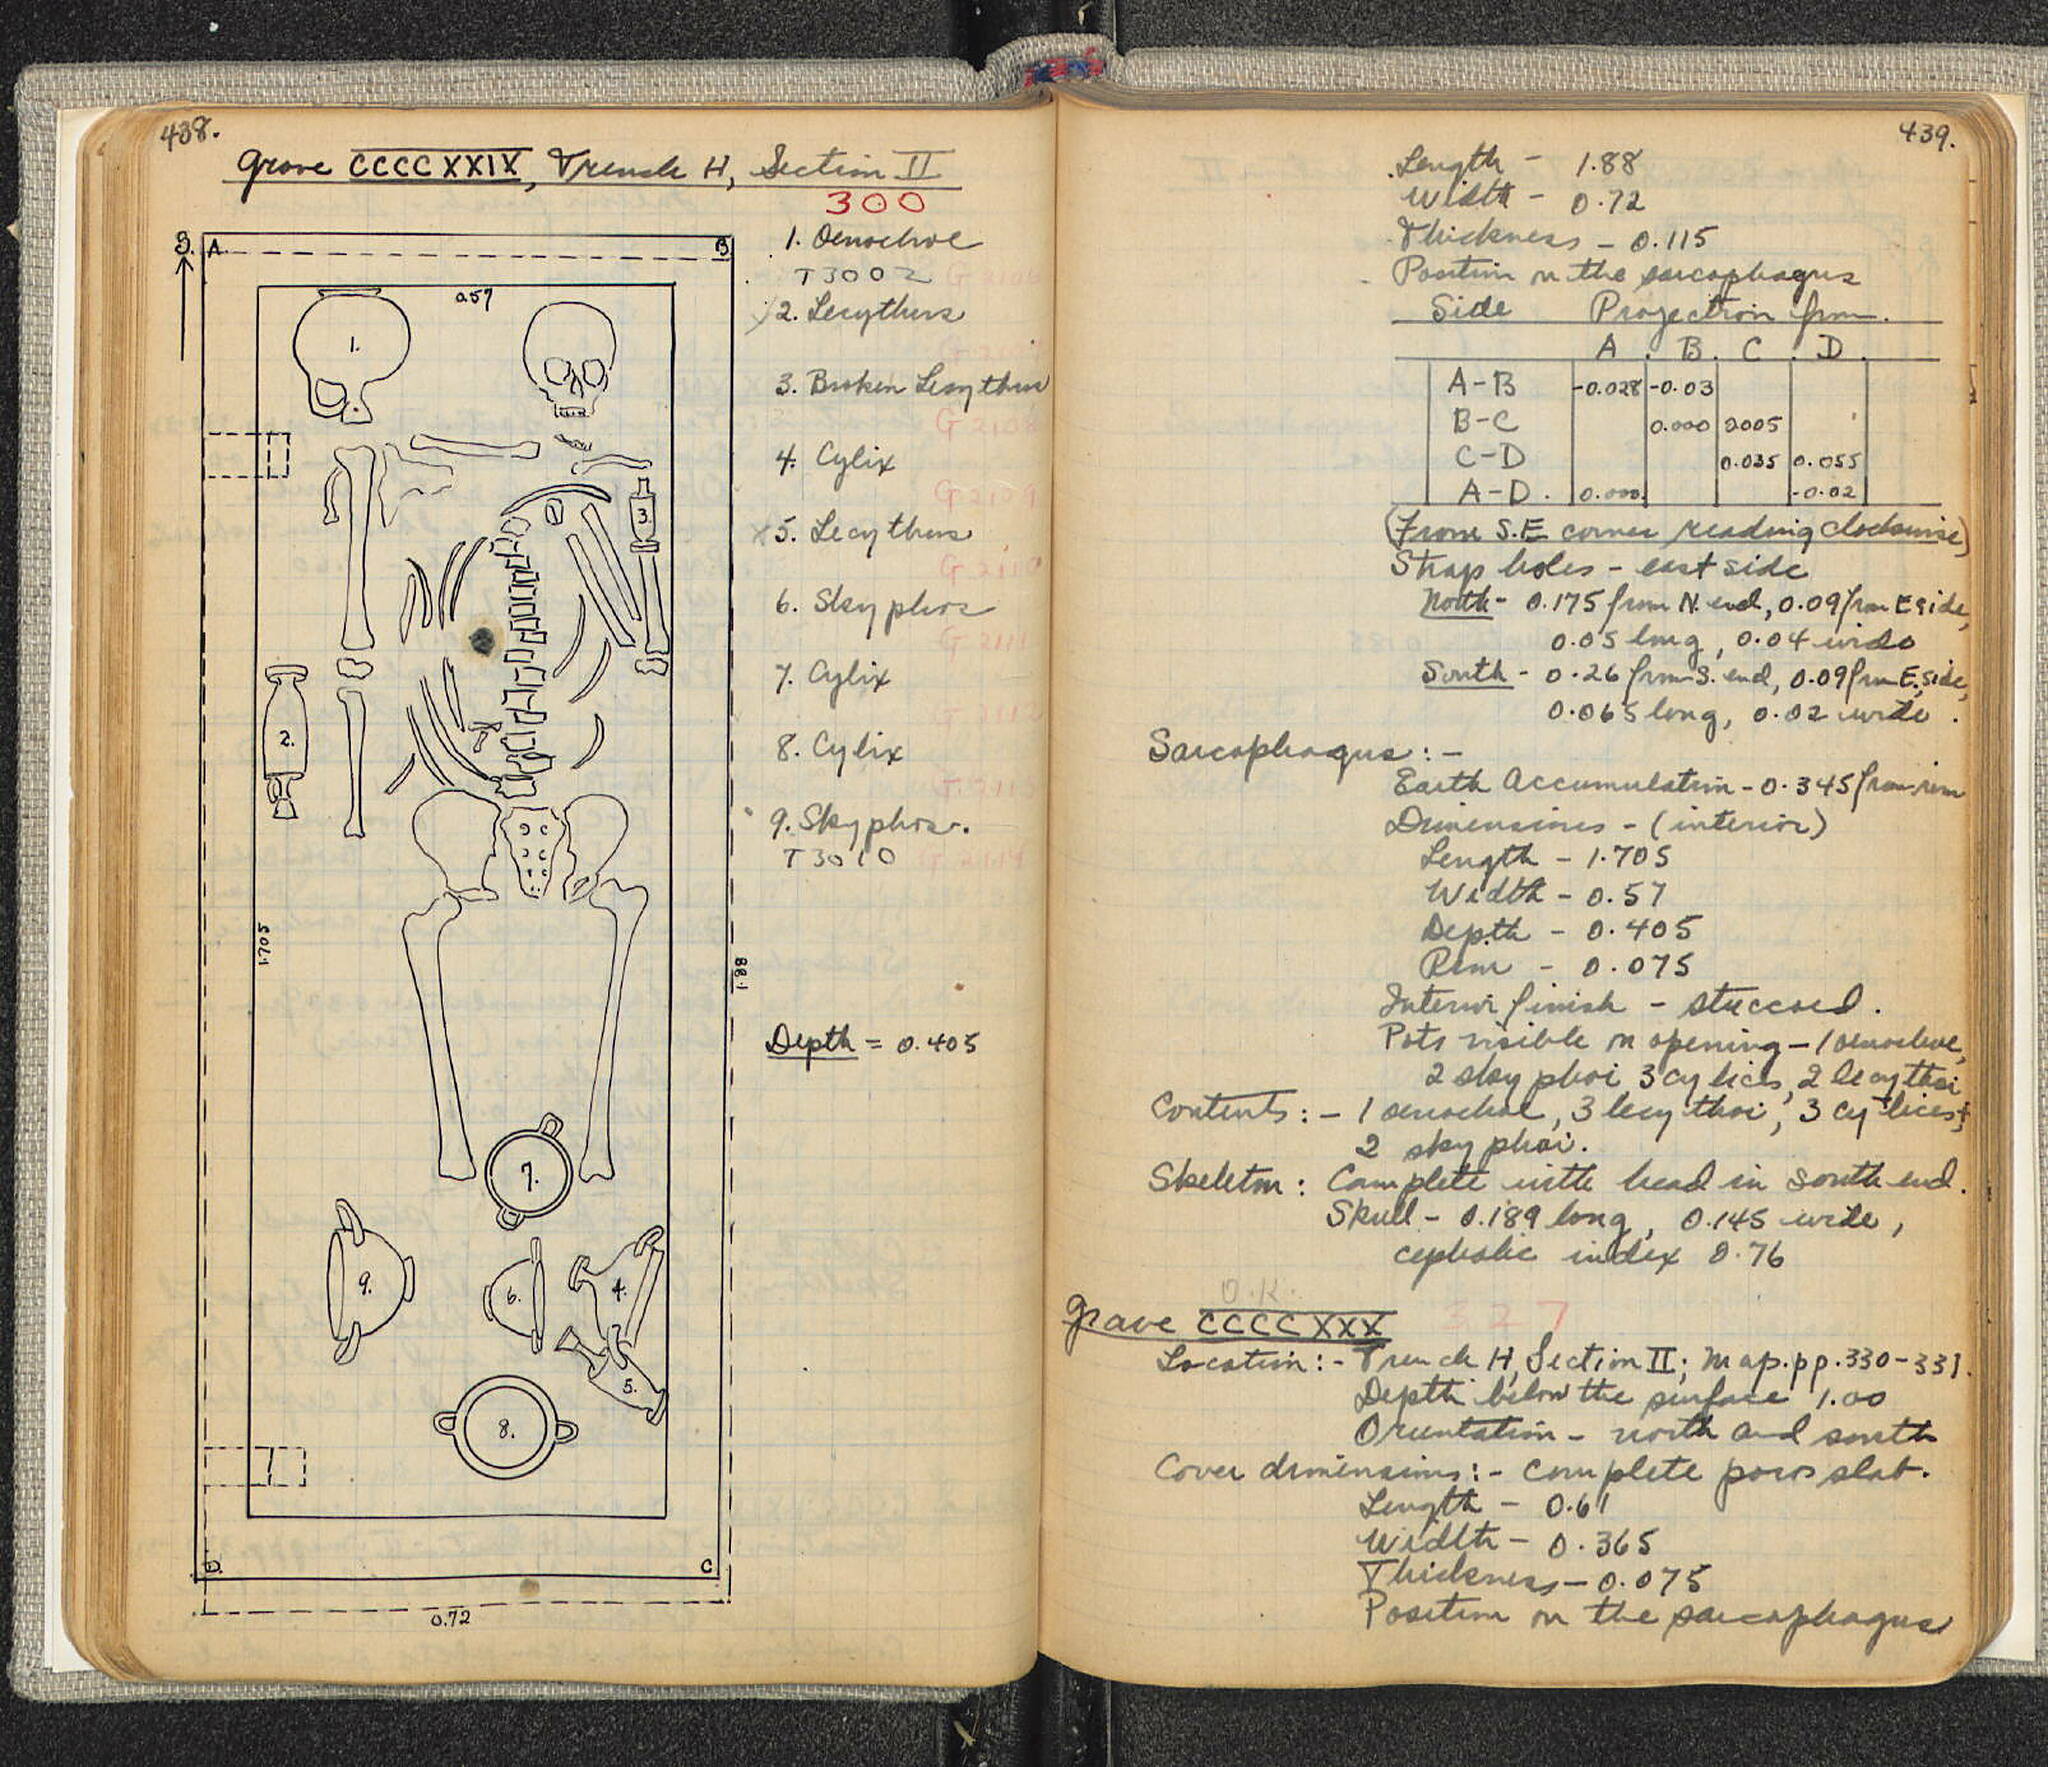 438.
Grave CCCCXXIX, Trench H, Section II
300
S.
A
B
0.57
1.
2.
3.
1.705
1.88
7.
9.
6.
4.
5.
8.
D.
C
0.72
1. Oenochoe
T3002
2. Lecythus
3. Broken Lecythus
G 2108
4. Cylix
G 2109
5. Lecythus
G 2110
6. Skyphos
G 2111
7. Cylix
G 2112
8. Cylix
G 2113
9. Skyphos.
T3010 G 2114
Depth = 0.405
439.
Length - 1.88
Width - 0.72
Thickness - 0.115
Position on the sarcophagus
Side Projection from.
A . B . C . D .
A-B -0.028 -0.03
B-C 0.000 2005
C-D 0.035 0.055
A-D. 0.000 -0.02
(From S.E corner reading clockwise)
Strap holes - east side
North - 0.175 from N. end, 0.09 from E side,
0.05 long, 0.04 wide
South - 0.26 from S. end, 0.09 from E. side,
0.065 long, 0.02 wide.
Sarcophagus: -
Earth Accumulation - 0.345 from rim
Dimensions - (interior)
Length - 1.705
Width - 0.57
Depth - 0.405
Rim - 0.075
Interior finish - stuccoed.
Pots visible on opening - 1 oenochoe,
2 skyphoi 3 cylices, 2 lecythoi
Contents: - 1 oenochoe, 3 lecythoi, 3 cylices,
2 skyphoi.
Skeleton: Complete with head in south end.
Skull - 0.189 long, 0.145 wide,
cephalic index 0.76
O.K.
Grave CCCCXXX 327
Location: - Trench H, Section II; Map. pp. 330-331.
Depth below the surface 1.00
Orientation - north and south
Cover dimensions: - Complete poros slab.
Length - 0.61
Width - 0.365
Thickness - 0.075
Position on the sarcophagus